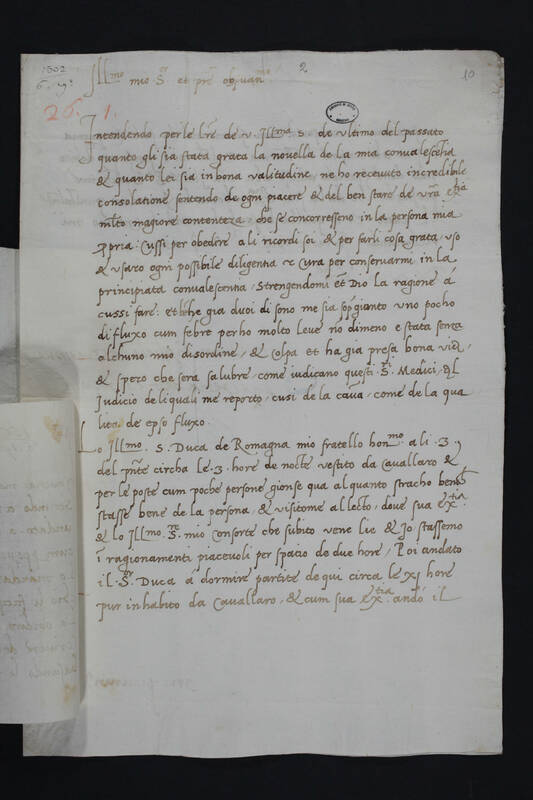 1502
2
10
Ill.mo mio S.re et pre obs.uan.mo
26. 1.
Intendendo per le l're de v. Ill.ma S. de vltimo del passato
quanto gli sia stata grata la nouella de la mia conualescentia
& quanto lei sia in bona valitudine, ne ho receuuto incredibile
consolatione sentendo de ogni piacere & del ben stare de vra ex.tia
mlto magiore contenteza, che se concorressero in la persona mia
ppria: Cussi per obedere a li ricordi soi & per farli cosa grata, vso
& vsaro ogni possibile diligentia & cura per conseruarmi in la
principiata conualescentia, strengendomi et Dio la ragione á
cussi fare: et bche gia duoi di sono me sia sopgionto vno pocho
di fluxo cum febre perho molto leue no dimeno e stata senza
alchuno mio disordine, & colpa et ha gia presa bona
& spero che sera salubre, come iudicano questi S.ri Medici, al
Judicio de li quali me reporto, cusi de la causa, come de la qua
lita de epso fluxo.
Lo Ill.mo S. Duca de Romagna mio fratello hon.mo a li .3.
del pnte circha le .3. hore de nocte vestito da cauallaro &
per le poste cum poche persone gionse qua alquanto stracho bench
stasse bene de la persona, & visitome al lecto, doue sua ex.tia
& lo Ill.mo S.re mio consorte che subito vene lie & Io stassemo
i ragionamenti piaceuoli per spatio de due hore, Poi andato
il S.r Duca a dormire partite de qui circa le xj hore
pur in habito da Cauallaro, & cum sua ex.tia andó il